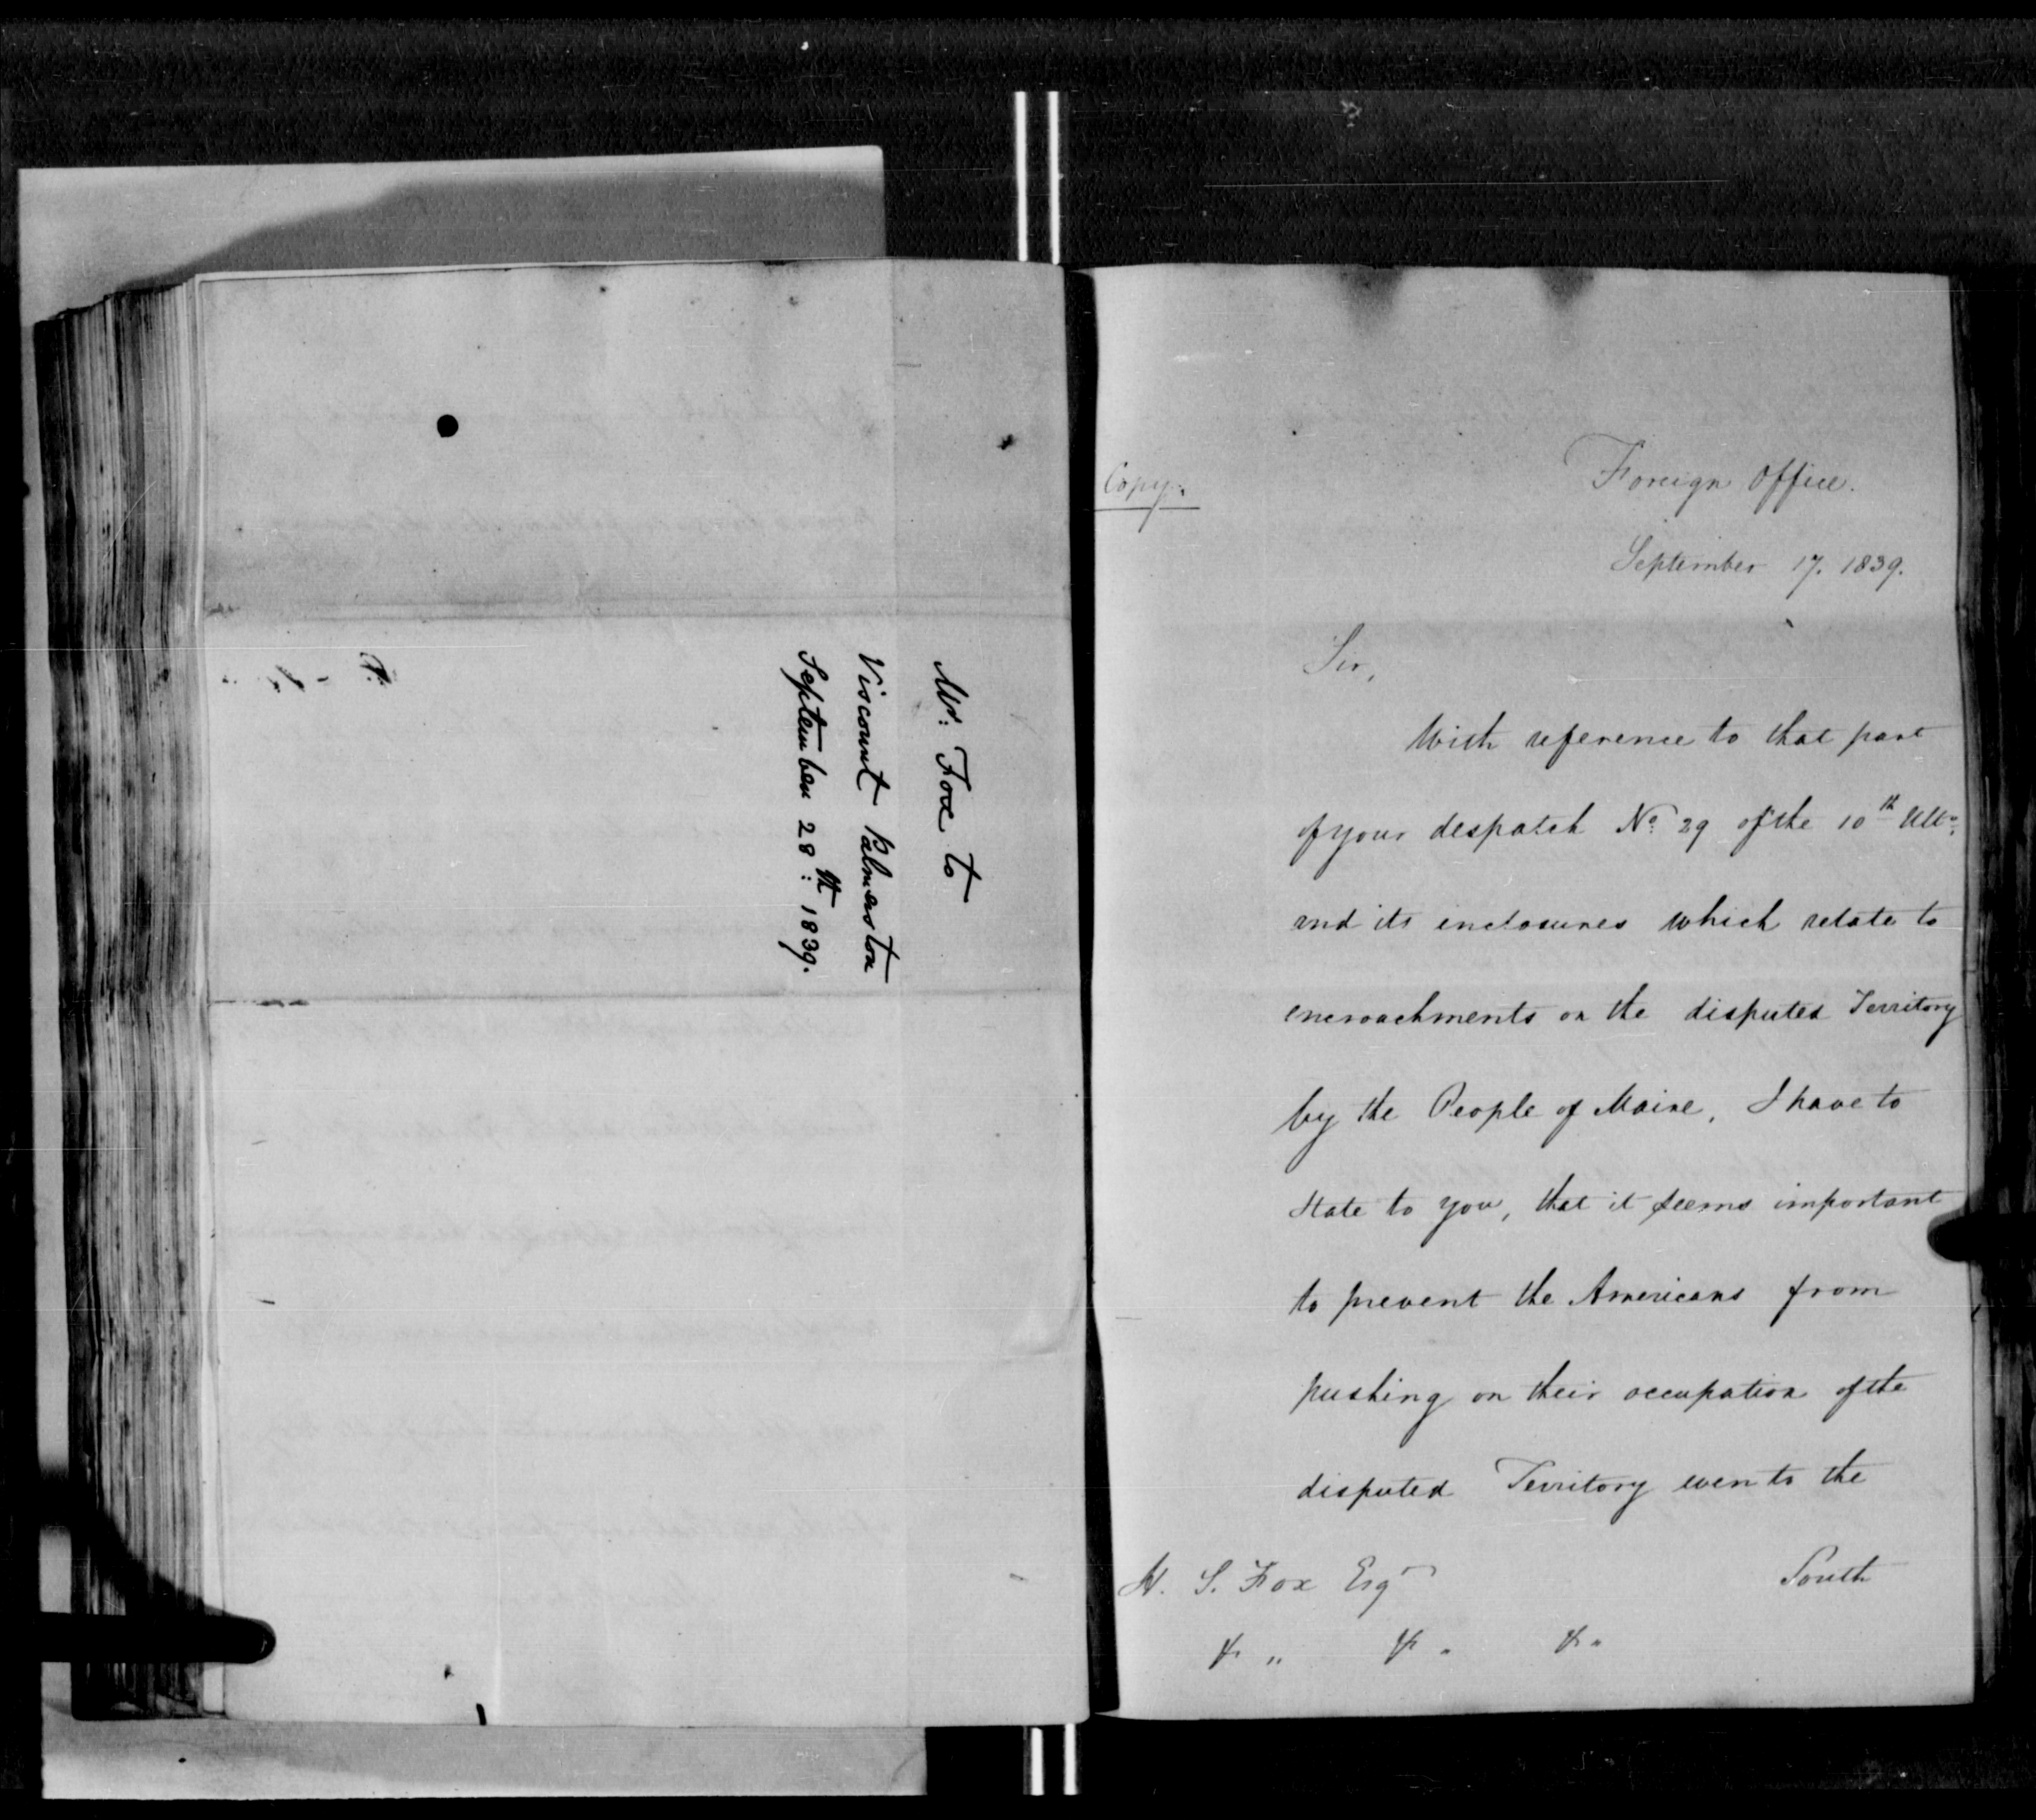 Mr. Fox to
Viscount Palmerston
September 28th. 1839.
Copy.
Foreign Office.
September 17. 1839.
Sir,
With reference to that part
of your despatch No. 29 of the 10th Ulto.
and its enclosures which relate to
encroachments on the disputed Territory
by the People of Maine, I have to
State to you, that it seems important
to prevent the Americans from
pushing on their occupation of the
disputed Territory even to the
South
H. S. Fox Esqr
&c " &c " &c "